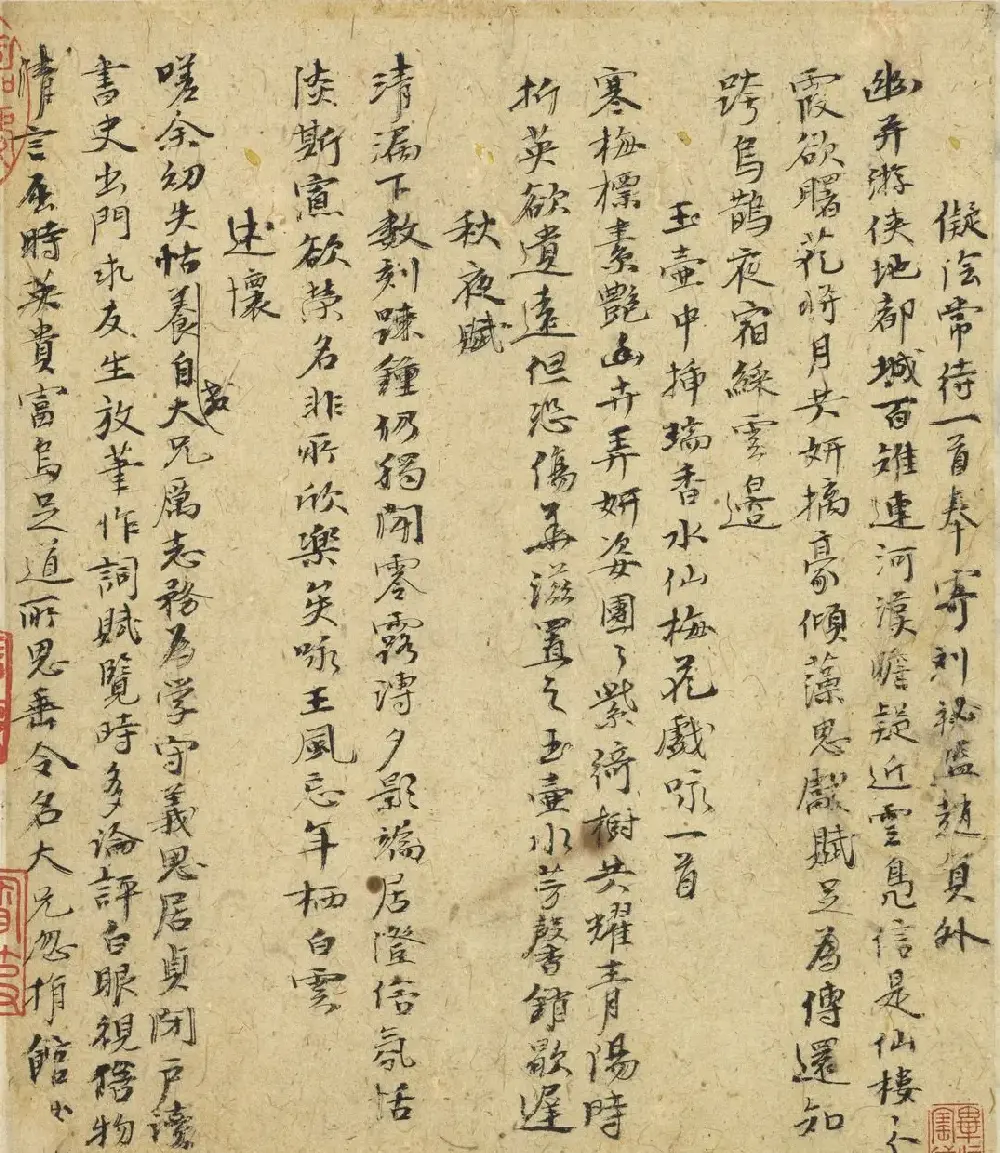 儗陰常侍一首奉寄刘祕監趙員外
幽并游侠地都城百雉連河漢瞻疑近雲鳧信是仙樓
霞欲曙花將月共妍摛豪傾藻思獻賦足為傳還知
跨烏鵲夜宿綵雲邉
玉壷中揷瑞香水仙梅花戲咏一首
寒梅標素艷幽卉弄妍姿團〻紫綺樹共耀青陽時
折英欲遺遠但恐傷華滋置之玉壷水芳馨銷歇遲
秋夜賦
清漏下数刻踈鍾仍獨聞零露漙夕影端居澄俗氛恬
淡斯寘欲榮名非所欣樂矣咏王風忘年栖白雲
述懷
嗟余幼失怙養自大兄厲志務為学守義思居貞閉戸讀
書史出門求友生放筆作詞賦覽時多論評白眼視俗物
清言屈時英貴富烏足道所思垂令名大兄忽捐館